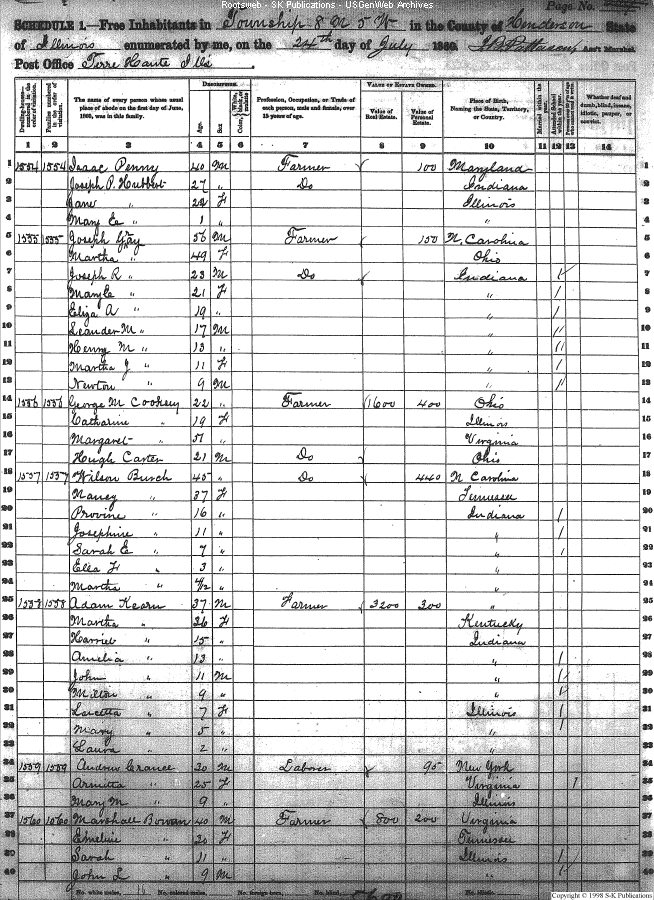 Rootsweb - SK Publications - USGenWeb Archives
Page No.
SCHEDULE 1.—Free Inhabitants in Township 8 N 5 W in the County of Henderson State
of Illinois enumerated by me, on the 24th day of July 1860. Ass't Marshal.
Post Office Terre Haute Ills
Dwelling-houses—numbered in the order of visitation.
Families numbered in the order of visitation.
The name of every person whose usual place of abode on the first day of June, 1860, was in this family.
DESCRIPTION.
Age.
Sex
Color,
Profession, Occupation, or Trade of each person, male and female, over 15 years of age.
VALUE OF ESTATE OWNED.
Value of Real Estate.
Value of Personal Estate.
Place of Birth, Naming the State, Territory, or Country.
Married within the year.
Whether deaf and dumb, blind, insane, idiotic, pauper, or convict.
1 2 3 4 5 6 7 8 9 10 11 12 13 14
1 1554 1554 Isaac Penny 40 M Farmer 100 Maryland 1
2 Joseph P. Hubbert 27 " Do Indiana 2
3 Jane " 22 F Illinois 3
4 Mary E " 1 " " 4
5 1555 1555 Joseph Gray 56 M Farmer 150 N. Carolina 5
6 Martha " 49 F Ohio 6
7 Joseph R " 23 M Do Indiana / 7
8 Mary E " 21 F " / 8
9 Eliza A " 19 " " / 9
10 Leander M " 17 M " / 10
11 Henry M " 13 " " / 11
12 Martha J " 11 F " / 12
13 Newton " 9 M " / 13
14 1556 1556 George M Cooksey 22 " Farmer 1600 400 Ohio 14
15 Catharine " 19 F Illinois 15
16 Margaret " 51 " Virginia 16
17 Hugh Carter 21 M Do Ohio 17
18 1557 1557 Wilson Burch 45 " Do 440 N Carolina 18
19 Nancy " 37 F Tennessee 19
20 Provine " 16 " Indiana / 20
21 Josephine " 11 " " / 21
22 Sarah E " 7 " " / 22
23 Ella F " 3 " " 23
24 Martha " 4/12 " " 24
25 1558 1558 Adam Kearn 37 M Farmer 3200 300 " 25
26 Martha " 36 F Kentucky 26
27 Harriet " 15 " Indiana 27
28 Amelia " 13 " " / 28
29 John " 11 M " / 29
30 Milton " 9 " " / 30
31 Loretta " 7 F Illinois / 31
32 Mary " 5 " " / 32
33 Laura " 2 " " 33
34 1559 1559 Andrew Crance 30 M Laborer 95 New York 34
35 Armitta " 25 F Virginia / 35
36 Mary M " 9 " Illinois 36
37 1560 1560 Marshall Bowan 40 M Farmer 800 200 Virginia 37
38 Emeline " 30 F Tennessee 38
39 Sarah " 11 " Illinois / 39
40 John L " 9 M " / 40
No. white males, No. colored males, No. foreign born, No. blind, No. idiotic,
Copyright © 1998 S-K Publications